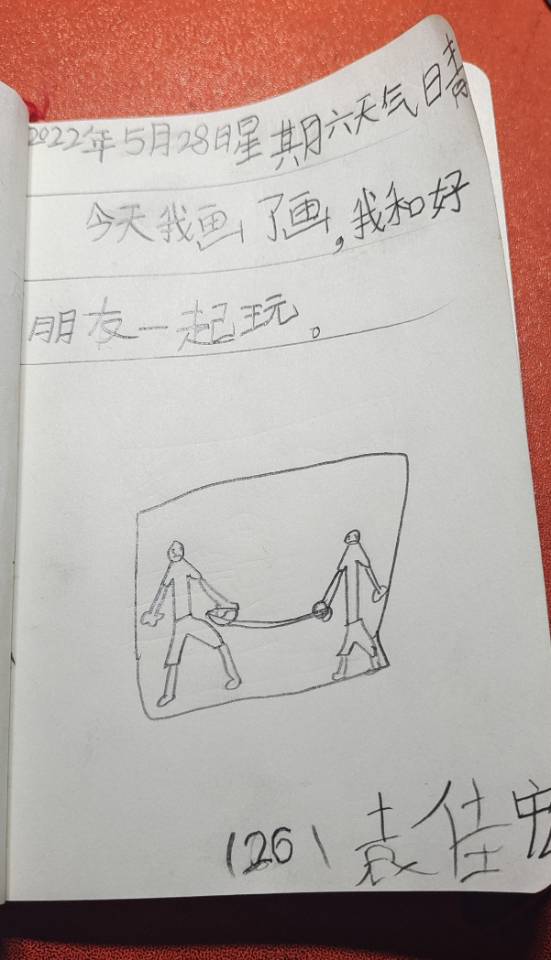 2022年5月28日星期六天气晴
今天我画了画,我和好
朋友一起玩。
(26) 袁佳